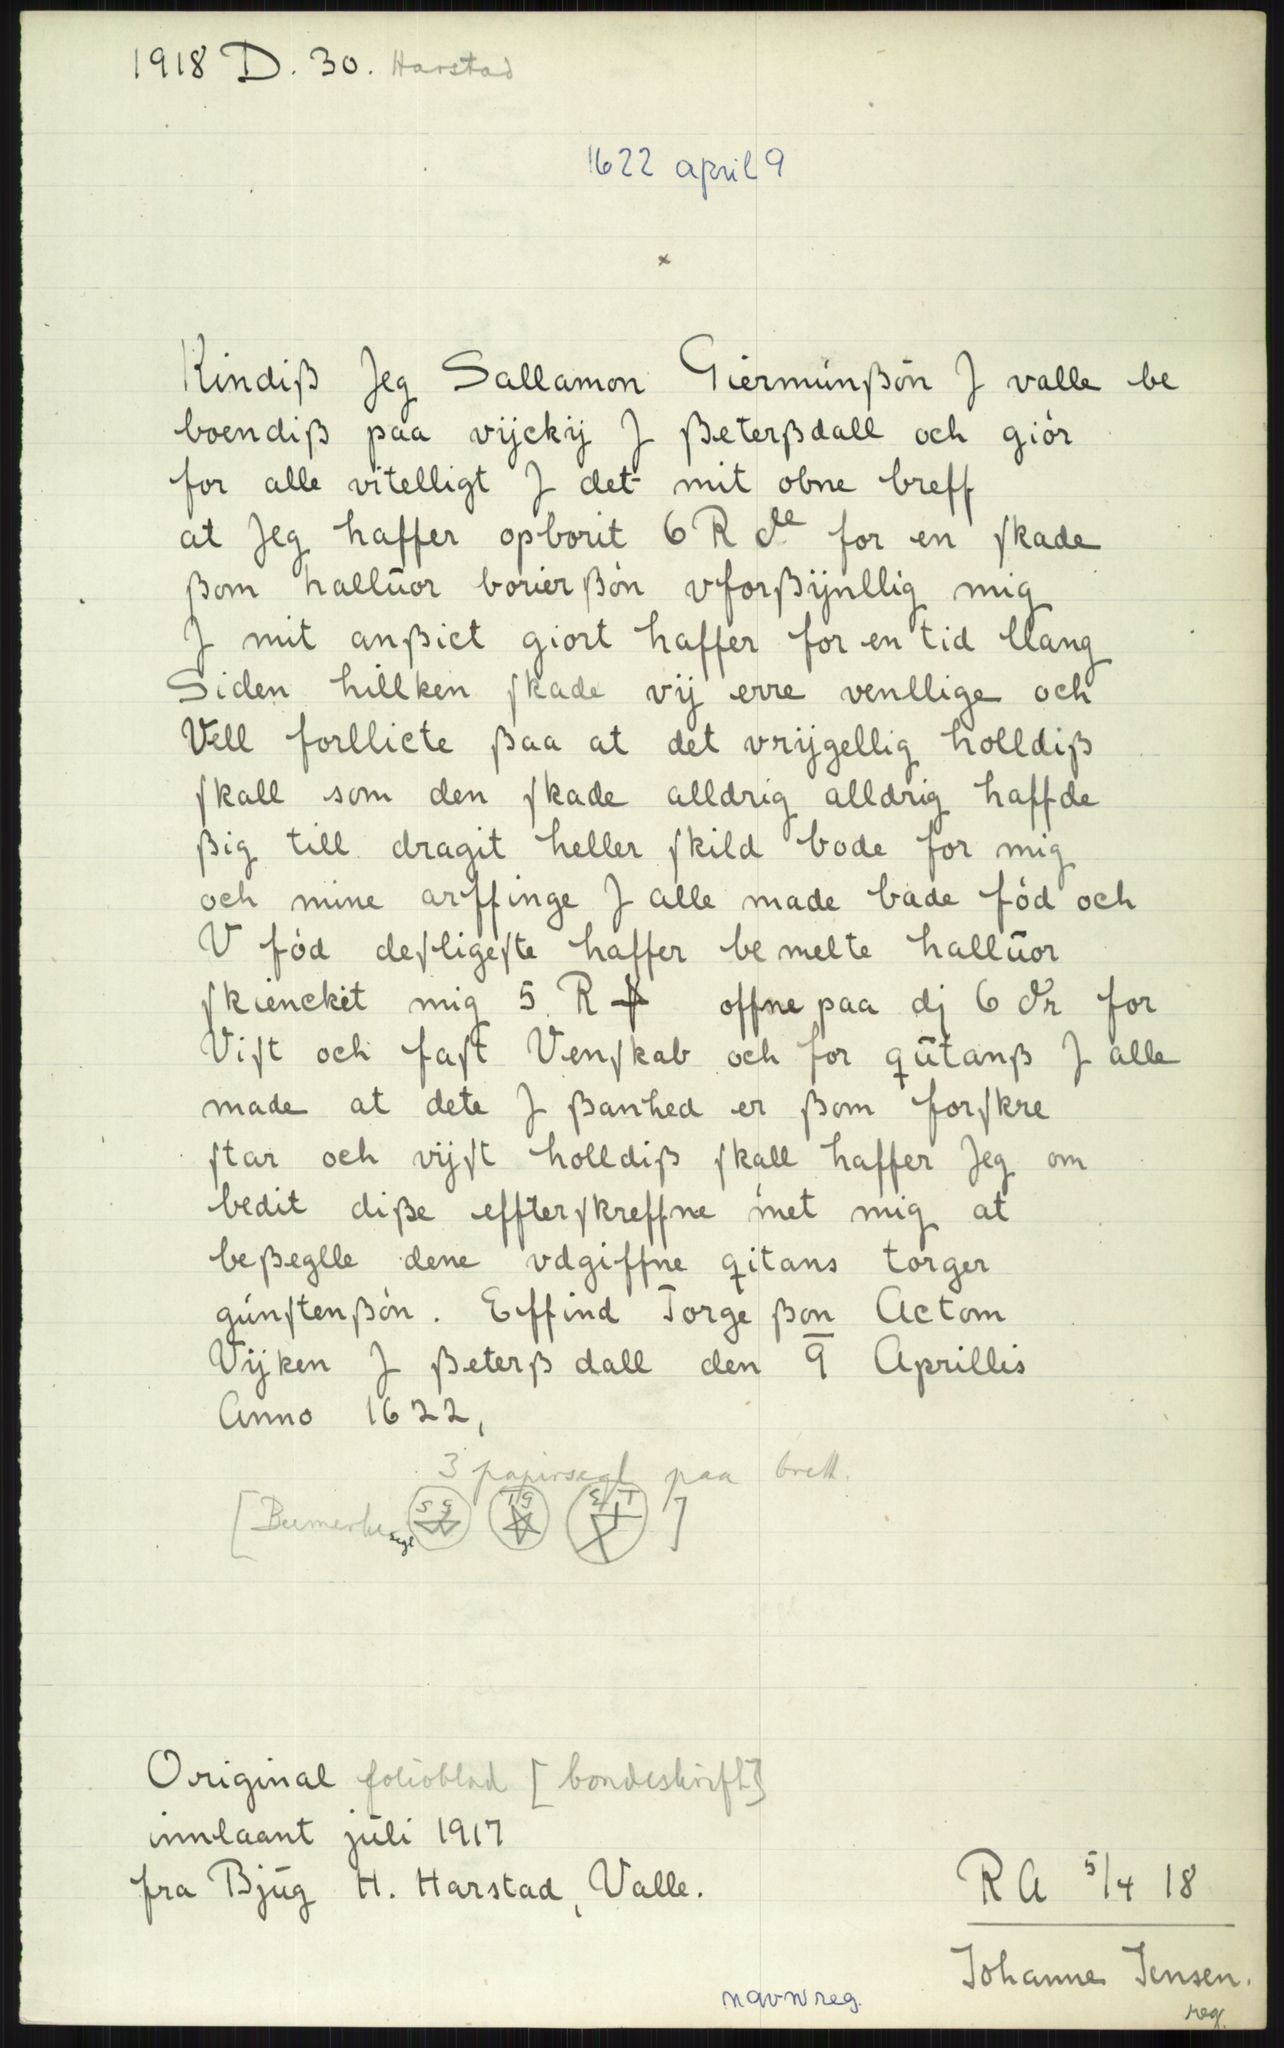 1918 D. 30. Harstad
1622 april 9
x
Kindiß Jeg Sallamon Giermúnßön J valle be
boendiß paa vijckij J ßeterßdall och giör
for alle vitelligt J det mit obne breff
at Jeg haffer opborit 6 R dle for en skade
ßom hallŭor borierßön vforßijnllig mig
J mit anßict giort haffer for en tid llang
Siden hillken skade vij erre venllige och
Vell forllicte ßaa at det vrijgellig holldiß
skall som den skade alldrig alldrig haffde
ßig till dragit heller skild bode for mig
och mine arffinge J alle made bade föd och
V föd desligeste haffer be melte hallŭor
skiencket mig 5 R offne paa dj 6 dr for
Vist och fast Venskab och for qŭtanß J alle
made at dete J ßanhed er ßom forskre
star och vijst holldiß skall haffer Jeg om
bedit diße effterskreffne met mig at
beßeglle dene vdgiffne qitans torger
gúnstenßön. Effind Torge ßon Actom
Vijken J ßeterß dall den 9 Aprillis
Anno 1622,
3 papirsegl paa brett.
[Bumerke segl SG TG ET ]
Original folioblad [bondeskrift]
innlaant juli 1917
fra Bjŭg H. Harstad, Valle.
RA 5/4 18
Johanne Jensen.
navnreg.
reg.